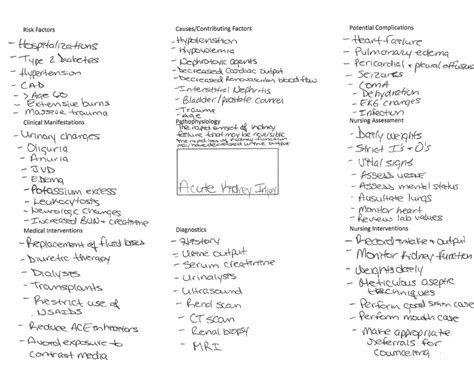 Risk Factors
- Hospitalizations
- Type 2 Diabetes
- Hypertension
- CAD
- > Age 60
- Extensive burns
- Massive trauma
Clinical Manifestations
- Urinary changes
- Oliguria
- Anuria
- JVD
- Edema
- Potassium excess
- Leukocytosis
- Neurologic Changes
- Increased BUN + creatinine
Medical Interventions
- Replacement of fluid loses
- Diuretic therapy
- Dialyses
- Transplants
- Restrict use of
NSAIDs
- Reduce ACE inhibitors
- Avoid exposure to
contrast media
Causes/Contributing Factors
- Hypotension
- Hypovolemia
- Nephrotoxic agents
- Decreased Cardiac output
- Decreased Renovascular blood flow
- Interstitial Nephritis
- Bladder/prostate cancer
- Trauma
- Age
Pathophysiology
The rapid onset of kidney
failure that may be reversible
The rapid loss of kidney function
may have decreased urine output
Acute Kidney Injury
Diagnostics
- History
- Urine output
- Serum creatinine
- Urinalysis
- Ultrasound
- Renal scan
- CT scan
- Renal biopsy
- MRI
Potential Complications
- Heart failure
- Pulmonary edema
- Pericardial + pleural effusion
- Seizures
- COMA
- Dehydration
- EKG changes
- Infection
Nursing Assessment
- Daily weights
- Strict I's + O's
- Vital signs
- Assess urine
- Assess mental status
- Ausultate lungs
- Monitor heart
- Review lab values
Nursing Interventions
- Record intake + output
- Monitor Kidney function
- Weights daily
- Meticulous aseptic
techniques
- Perform good skin care
- Perform mouth care
- Make appropriate
referrals for
counseling